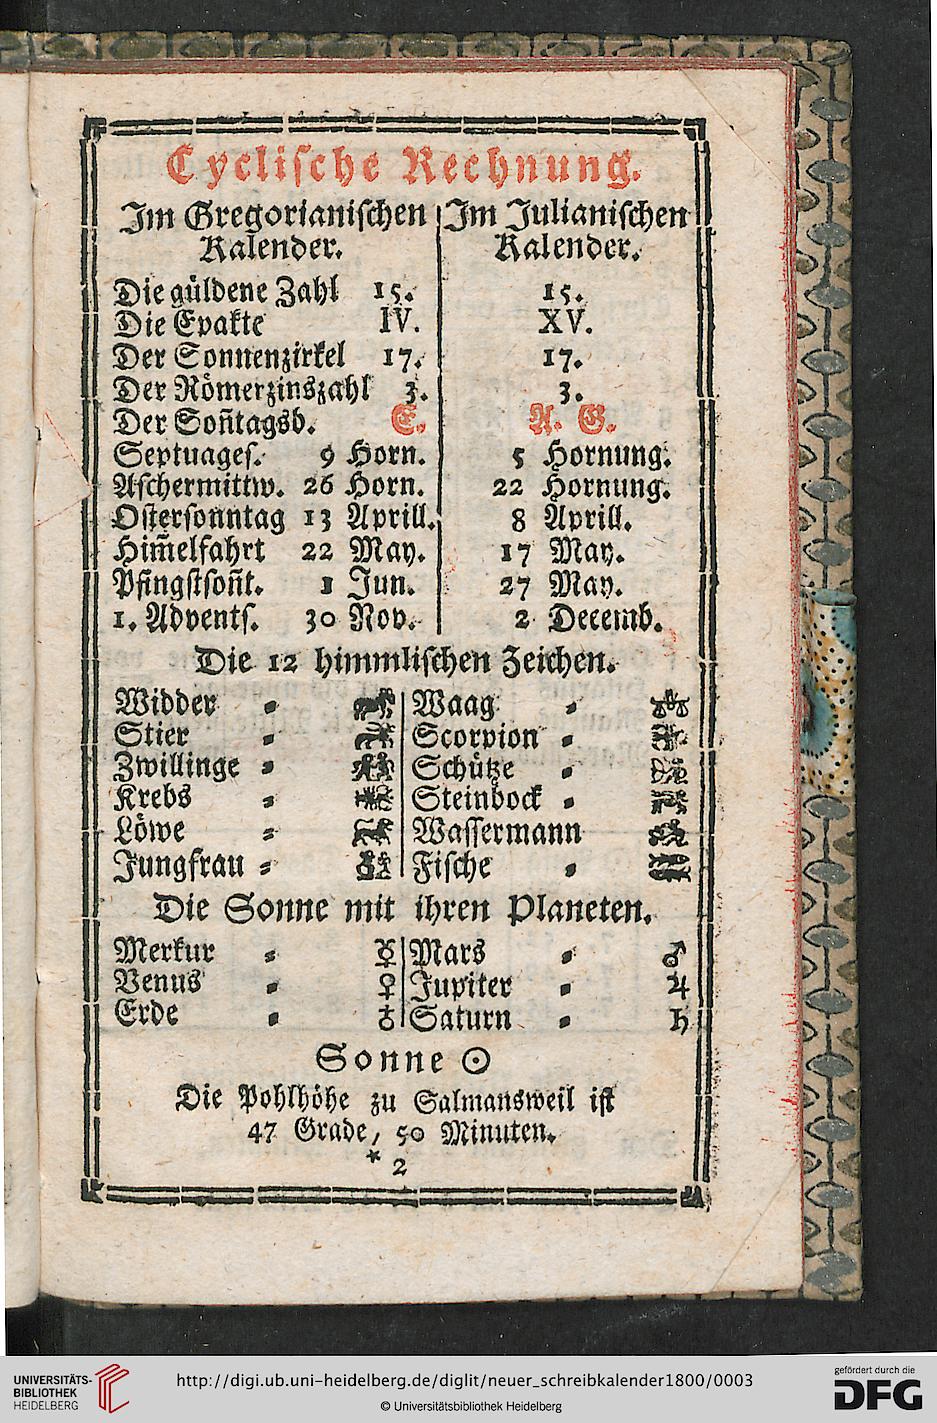 Cyclische Rechnung.
Im Gregorianischen | Im Julianischen
Kalender. Kalender.
Die güldene Zahl 15. 15.
Die Epakte IV. XV.
Der Sonnenzirkel 17. 17.
Der Römerzinszahl 3. 3.
Der Soñtagsb. E. A. G.
Septuages. 9 Horn. 5 Hornung.
Aschermittw. 26 Horn. 22 Hornung.
Ostersonntag 13 Aprill. 8 Aprill.
Him̃elfahrt 22 May. 17 May.
Pfingstsoñt. 1 Jun. 27 May.
1. Advents. 30 Nov. 2 Decemb.
Die 12 himmlischen Zeichen.
Widder = | Waag =
Stier = | Scorpion =
Zwillinge = | Schütze =
Krebs = | Steinbock =
Löwe = | Wassermann
Jungfrau = | Fische =
Die Sonne mit ihren Planeten.
Merkur = ☿ | Mars = ♂
Venus = ♀ | Jupiter = ♃
Erde = ♁ | Saturn = ♄
Sonne ☉
Die Pohlhöhe zu Salmansweil ist
47 Grade, 50 Minuten.
* 2
UNIVERSITÄTS-
BIBLIOTHEK
HEIDELBERG
http://digi.ub.uni-heidelberg.de/diglit/neuer_schreibkalender1800/0003
© Universitätsbibliothek Heidelberg
gefördert durch die
DFG